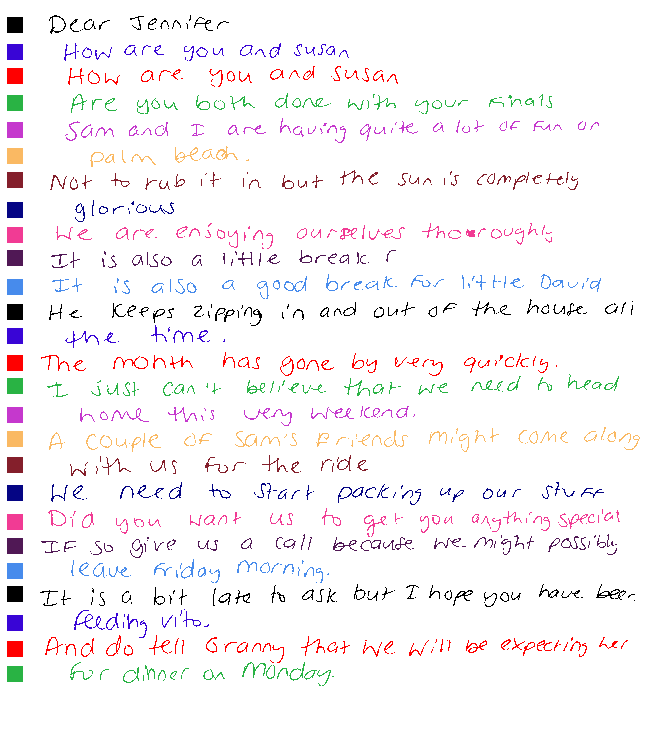 Dear Jennifer
How are you and susan
How are you and susan
Are you both done with your finals
Sam and I are having quite a lot of fun on
palm beach.
Not to rub it in but the sun is completely
glorious
We are enjoying ourselves thoroughly
It is also a little break f
It is also a good break for little David
He keeps zipping in and out of the house all
the time.
The month has gone by very quickly.
I just can't believe that we need to head
home this very weekend.
A couple of Sam's friends might come along
with us for the ride
We need to start packing up our stuff
Did you want us to get you anything special
If so give us a call because we might possibly
leave Friday morning.
It is a bit late to ask but I hope you have been
feeding vito.
And do tell Granny that we will be expecting her
for dinner on Monday.